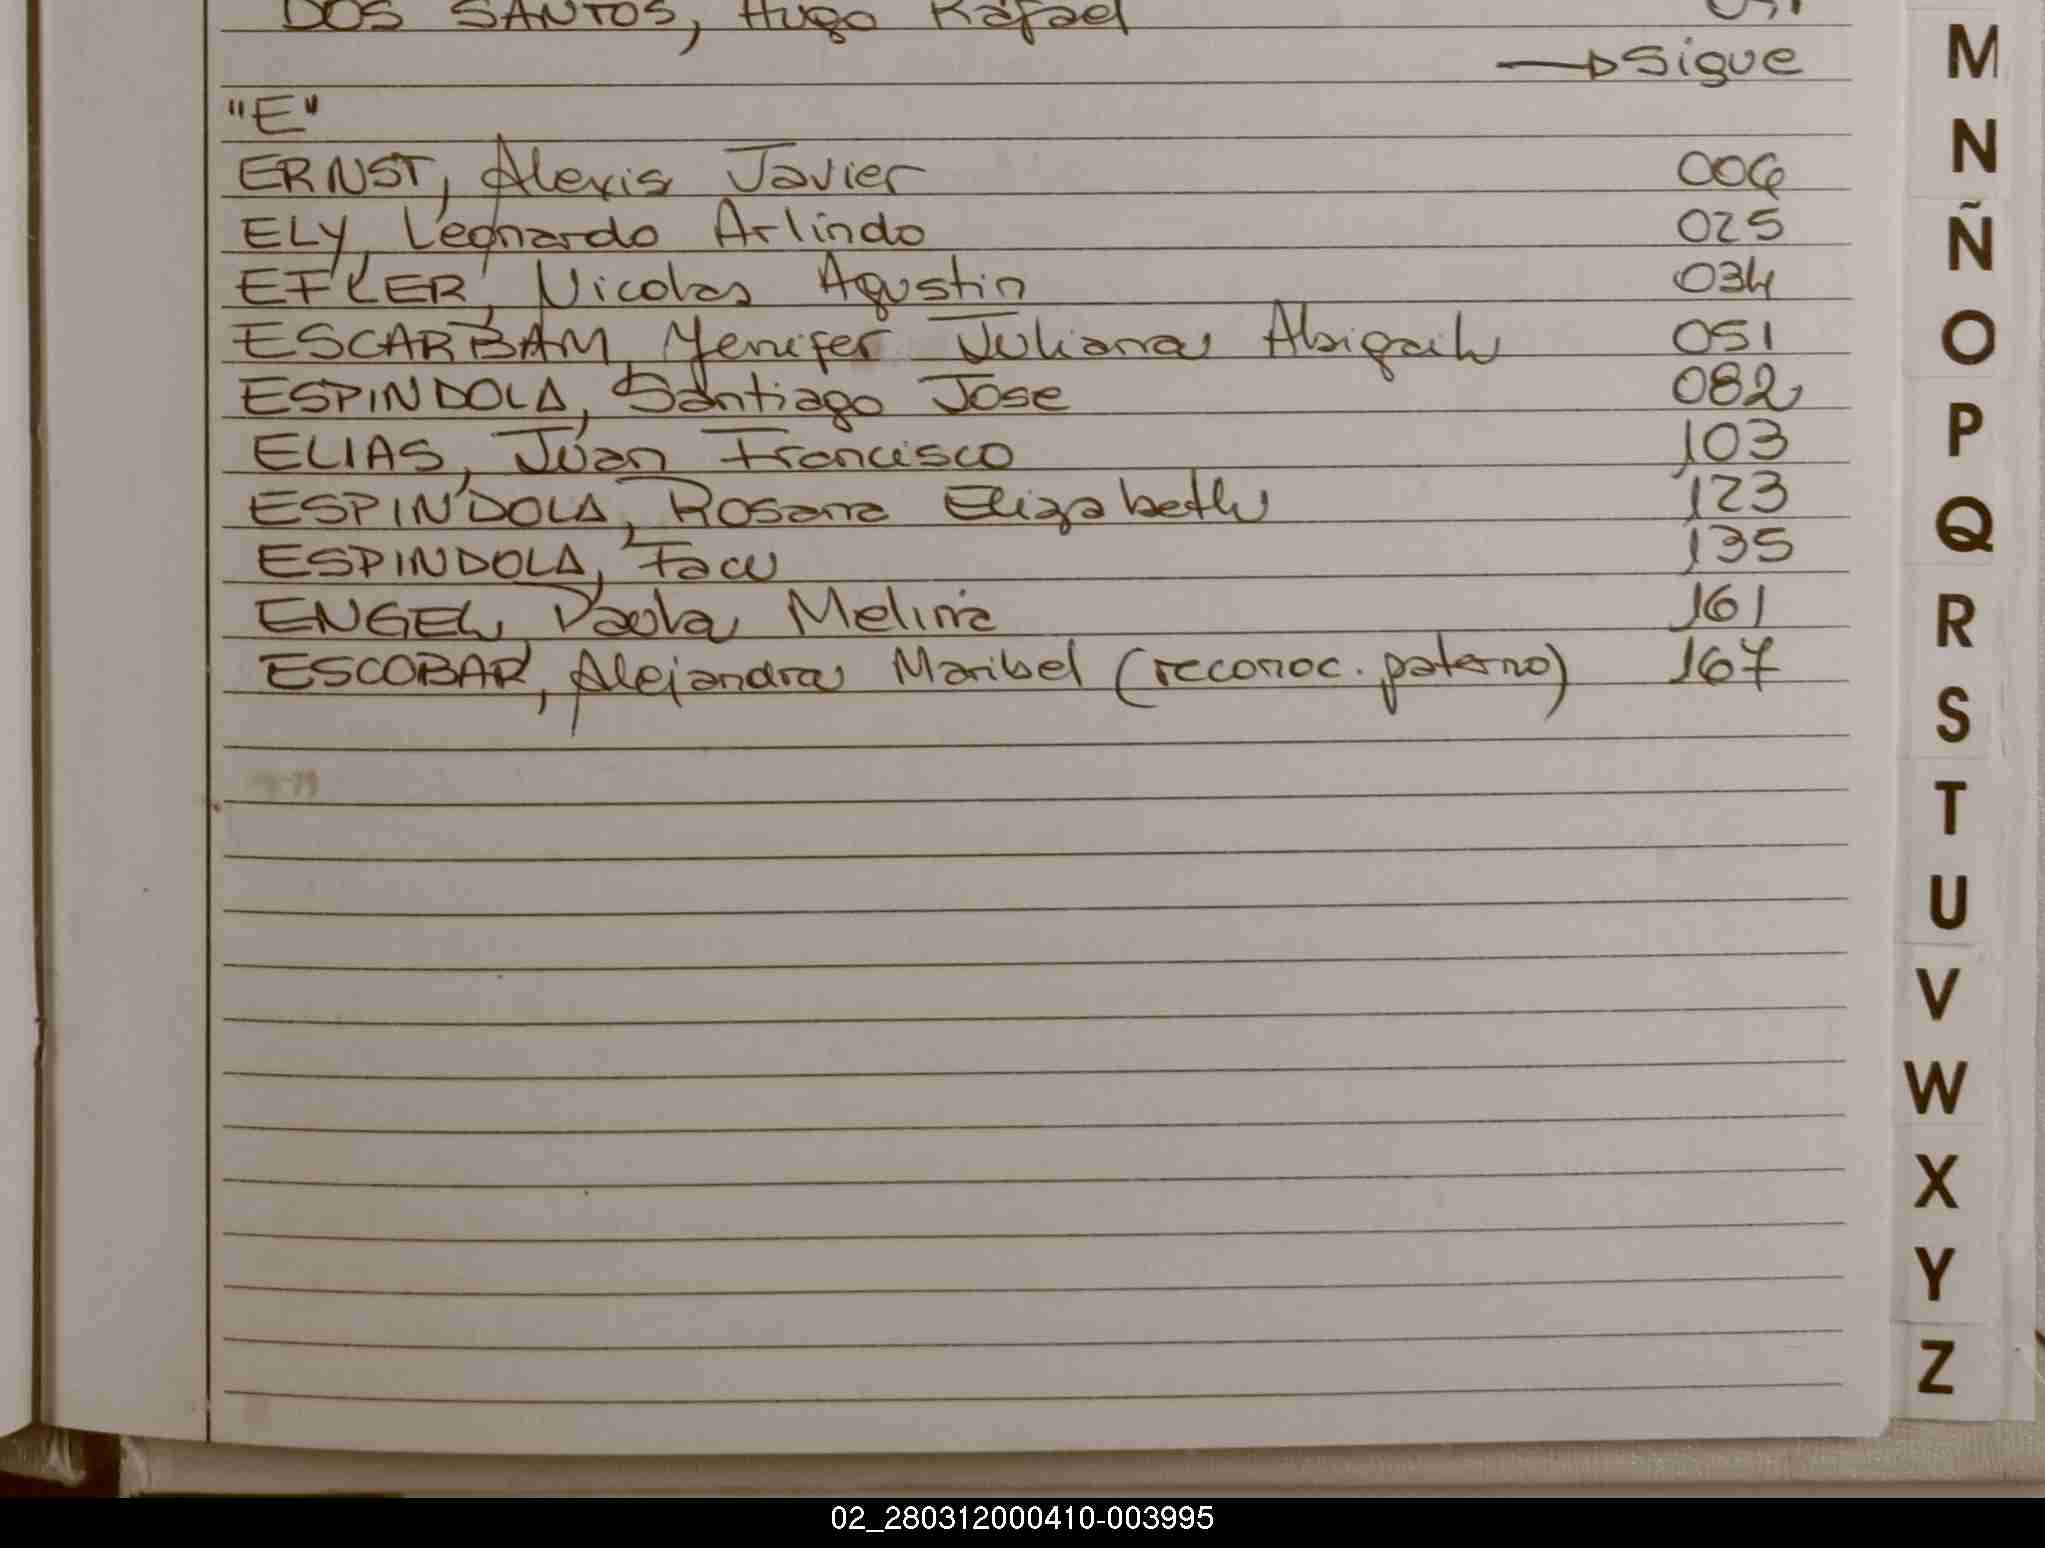 DOS SANTOS, Hugo Rafael
→ Sigue
"E"
ERNST, Alexis Javier 006
ELY, Leonardo Arlindo 025
EFLER, Nicolas Agustin 034
ESCARBAM, Yenifer Juliana Abigail 051
ESPINDOLA, Santiago Jose 082
ELIAS, Juan Francisco 103
ESPINDOLA, Rosana Elizabeth 123
ESPINDOLA, Facu 135
ENGEL, Paola Melina 161
ESCOBAR, Alejandra Maribel (reconoc. paterno) 167
M
N
Ñ
O
P
Q
R
S
T
U
V
W
X
Y
Z
02_280312000410-003995